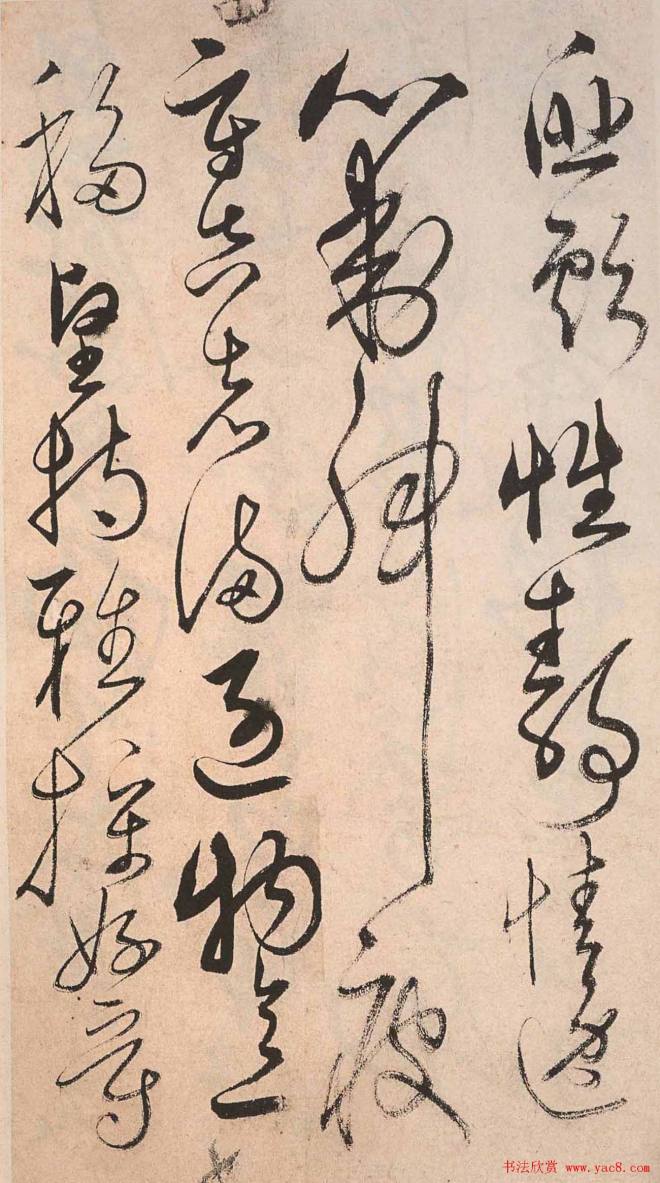 匪亏性静情逸
心动神疲
守真志满逐物意
移坚持雅操好爵
书法欣赏 www.yac8.com